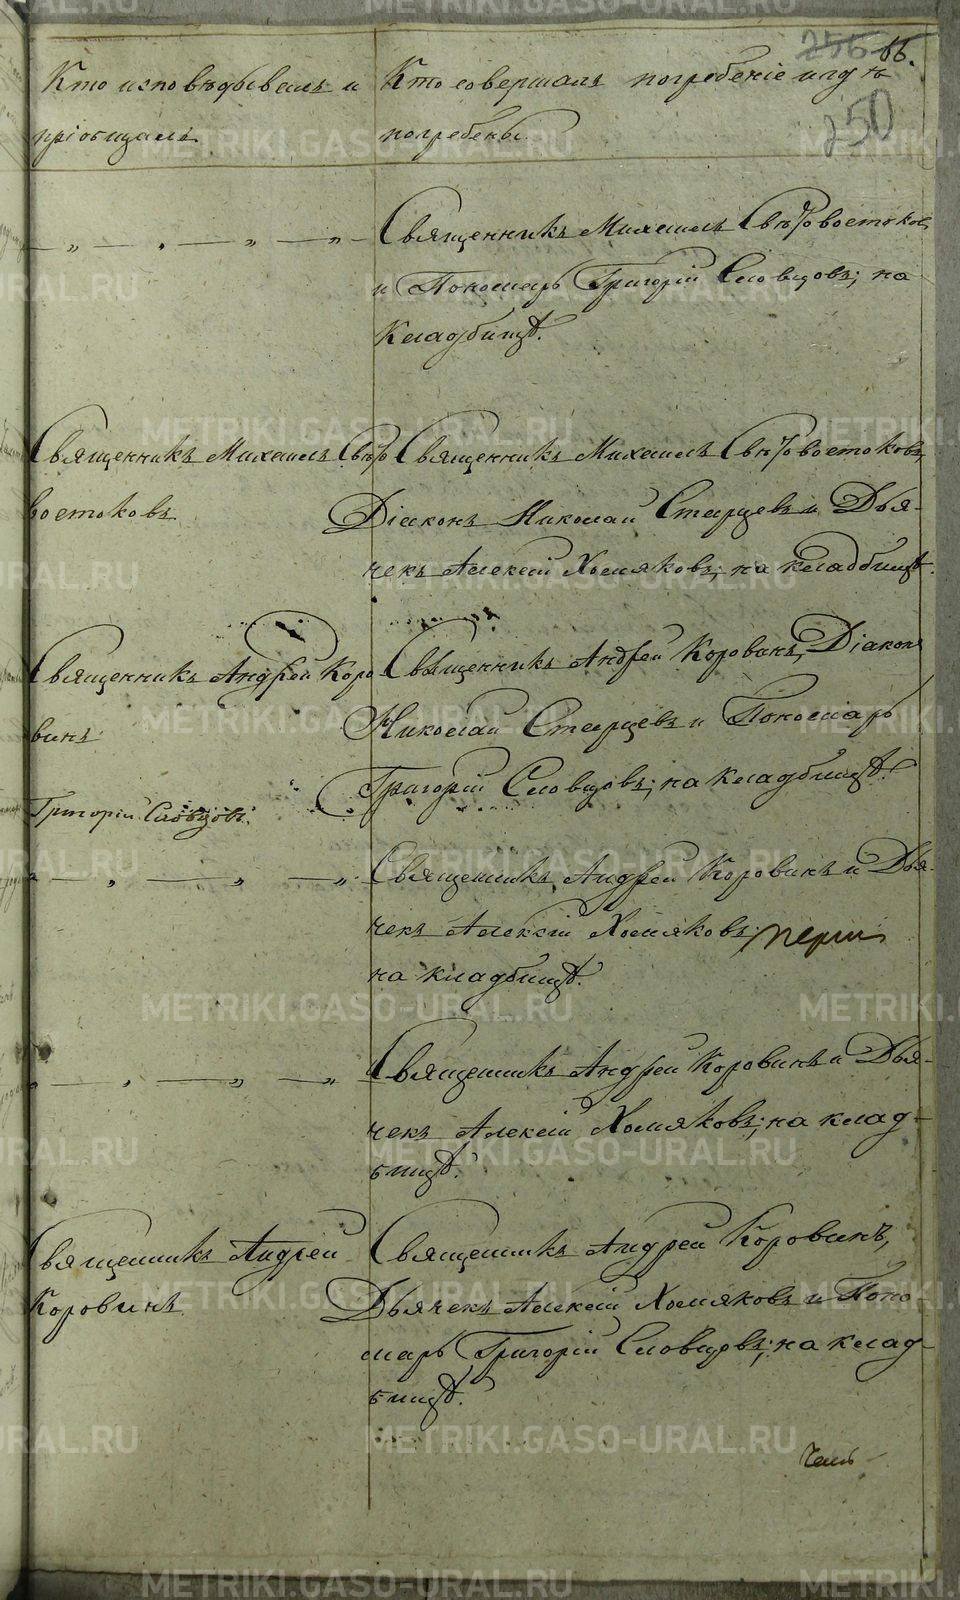 255 66.
250
Кто исповѣдывалъ и
пріобщалъ
Кто совершалъ погребеніе и гдѣ
погребены.
— „ — „ — „ — „ —
Священникъ Михаилъ Свѣтовостоковъ
и Пономарь Григорій Словцовъ; на
кладбищѣ.
Священникъ Михаилъ Свѣто
востоковъ
Священникъ Михаилъ Свѣтовостоковъ,
Діаконъ Николай Старцевъ и Дья-
чекъ Алексій Хомяковъ; на кладбищѣ.
Священникъ Андрей Коро-
винъ
Григорій Словцовъ.
Священникъ Андрей Коровинъ, Діаконъ
Николай Старцевъ и Пономарь
Григорій Словцовъ; на кладбищѣ.
„ — „ — „ — „
Священникъ Андрей Коровинъ и Дья-
чекъ Алексій Хомяковъ;
на кладбищѣ.
„ — „ — „ — „
Священникъ Андрей Коровинъ и Дья-
чекъ Алексій Хомяковъ; на клад-
бищѣ.
Священникъ Андрей
Коровинъ
Священникъ Андрей Коровинъ,
Дьячекъ Алексій Хомяковъ и Поно-
марь Григорій Словцовъ; на клад-
бищѣ.
METRIKI.GASO-URAL.RU